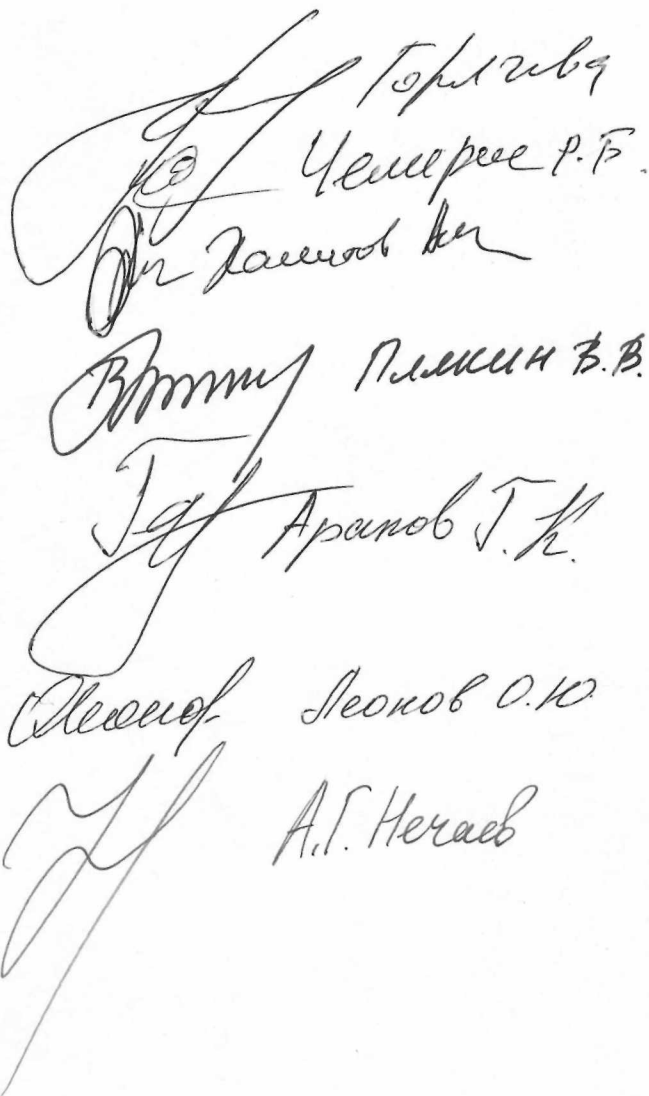 Горячева
Чемерис Р.Б.
Хамитов
Пямкин В.В.
Арапов Г.К.
Леонов О.Ю.
А.Г. Нечаев